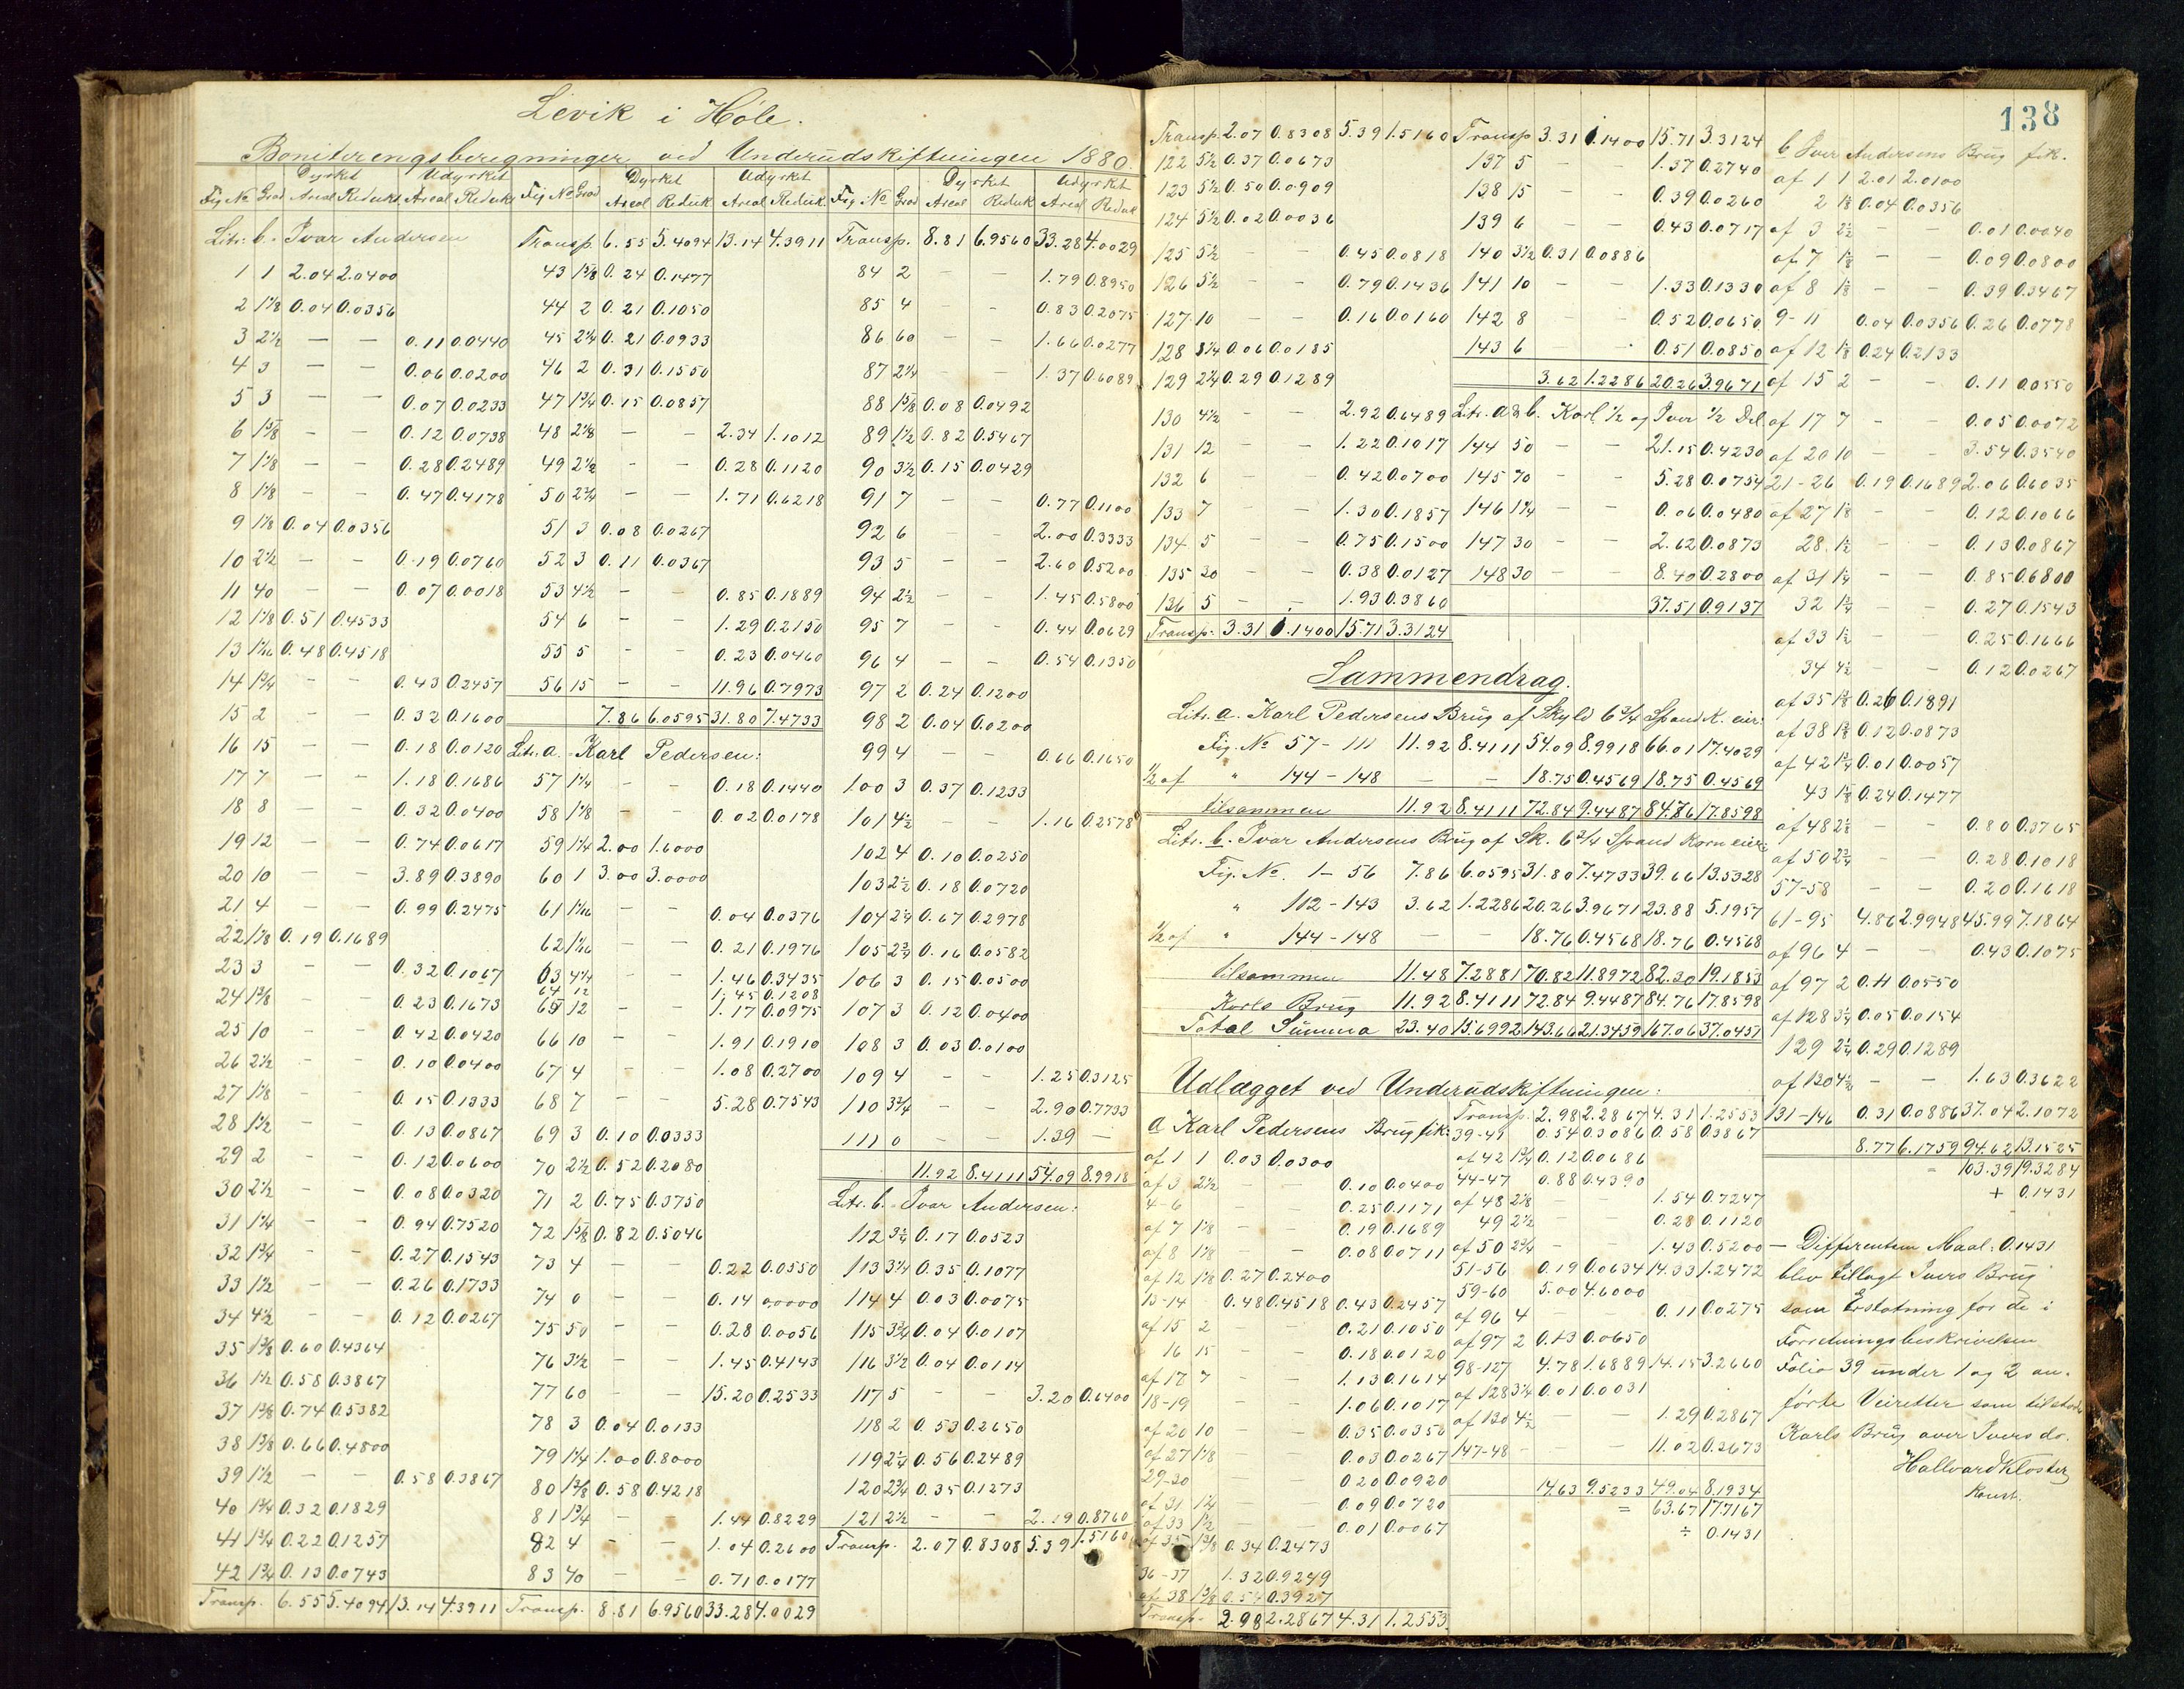 Levik i Høle.
Boniterengsberegninger ved Underudskiftningen 1880
Dyrket Udyrket
Fig. No Grad Areal Reduks Areal Reduks
Litr. b. Ivar Andersen
1 1 2.04 2.0400
2 1⅛ 0.04 0.0356
3 2½ — — 0.11 0.0440
4 3 0.06 0.0200
5 3 — — 0.07 0.0233
6 1⅝ — — 0.12 0.0738
7 1⅛ — — 0.28 0.2489
8 1⅛ — — 0.47 0.4178
9 1⅛ 0.04 0.0356
10 2½ — — 0.19 0.0760
11 40 — — 0.07 0.0018
12 1⅛ 0.51 0.4533
13 1 1/16 0.48 0.4518
14 1¾ — — 0.43 0.2457
15 2 — — 0.32 0.1600
16 15 — — 0.18 0.0120
17 7 — — 1.18 0.1686
18 8 — — 0.32 0.0400
19 12 — — 0.74 0.0617
20 10 — — 3.89 0.3890
21 4 — — 0.99 0.2475
22 1⅛ 0.19 0.1689
23 3 — — 0.32 0.1067
24 1⅜ — — 0.23 0.1673
25 10 — — 0.42 0.0420
26 2½ — — 0.10 0.0400
27 1⅛ — — 0.15 0.1333
28 1½ — — 0.13 0.0867
29 2 — — 0.12 0.0600
30 2½ — — 0.08 0.0320
31 1¼ — — 0.94 0.7520
32 1¾ — — 0.27 0.1543
33 1½ — — 0.26 0.1733
34 4½ — — 0.12 0.0267
35 1⅜ 0.60 0.4364
36 1½ 0.58 0.3867
37 1⅜ 0.74 0.5382
38 1⅜ 0.66 0.4800
39 1½ — — 0.58 0.3867
40 1¾ 0.32 0.1829
41 1¾ 0.22 0.1257
42 1¾ 0.13 0.0743
Transp. 6.55 5.4094 13.14 4.3911
Dyrket Udyrket
Fig No Grad Areal Reduk Areal Reduk
Transp. 6.55 5.4094 13.14 4.3911
43 1⅝ 0.24 0.1477
44 2 0.21 0.1050
45 2¼ 0.21 0.0933
46 2 0.31 0.1550
47 1¾ 0.15 0.0857
48 2⅛ — — 2.34 1.1012
49 2½ - — 0.28 0.1120
50 2¾ — — 1.71 0.6218
51 3 0.08 0.0267
52 3 0.11 0.0367
53 4½ — — 0.85 0.1889
54 6 — — 1.29 0.2150
55 5 — — 0.23 0.0460
56 15 — — 11.96 0.7973
7.86 6.0595 31.80 7.4733
Litr. a. Karl Pedersen:
57 1¼ — — 0.18 0.1440
58 1⅛ — — 0.02 0.0178
59 1¼ 2.00 1.6000
60 1 3.00 3.0000
61 1 1/16 — — 0.04 0.0376
62 1 1/16 — — 0.21 0.1976
63 4¼ — — 1.46 0.3435
64 12 1.45 0.1208
65 12 — — 1.17 0.0975
66 10 — — 1.91 0.1910
67 4 — — 1.08 0.2700
68 7 — — 5.28 0.7543
69 3 0.10 0.0333
70 2½ 0.52 0.2080
71 2 0.75 0.3750
72 1⅝ 0.82 0.5046
73 4 — — 0.22 0.0550
74 0 — — 0.14 0.0000
75 50 — — 0.28 0.0056
76 3½ — — 1.45 0.4143
77 60 — — 15.20 0.2533
78 3 0.04 0.0133
79 1¼ 1.00 0.8000
80 1⅜ 0.58 0.4218
81 1¾ — — 1.44 0.8229
82 4 — — 1.04 0.2600
83 40 — — 0.71 0.0177
Transp. 8.81 6.9560 33.28 4.0029
Dyrket Udyrket
Fig. No Grad Areal Reduk Areal Reduk
Transp. 8.81 6.9560 33.28 4.0029
84 2 — — 1.79 0.8950
85 4 - 0.83 0.2075
86 60 — — 1.66 0.0277
87 2¼ — — 1.37 0.6089
88 1⅝ 0.08 0.0492
89 1½ 0.82 0.5467
90 3½ 0.15 0.0429
91 7 — — 0.77 0.1100
92 6 — — 2.00 0.3333
93 5 — — 2.60 0.5200
94 2½ — — 1.45 0.5800
95 7 — — 0.44 0.0629
96 4 — — 0.54 0.1350
97 2 0.24 0.1200
98 2 0.04 0.0200
99 4 — — 0.66 0.1650
100 3 0.37 0.1233
101 4½ — — 1.16 0.2578
102 4 0.10 0.0250
103 2½ 0.18 0.0720
104 2¼ 0.67 0.2978
105 2¾ 0.16 0.0582
106 3 0.15 0.0500
107 3 0.12 0.0400
108 3 0.03 0.0100
109 4 — — 1.25 0.3125
110 3¾ — — 2.90 0.7733
111 0 — — 1.39 —
11.92 8.4111 54.09 8.9918
Litr. b. Ivar Andersen:
112 3¼ 0.17 0.0523
113 3¼ 0.35 0.1077
114 4 0.03 0.0075
115 3¾ 0.04 0.0107
116 3½ 0.04 0.0114
117 5 — — 3.20 0.6400
118 2 0.53 0.2650
119 2¼ 0.56 0.2489
120 2¾ 0.35 0.1273
121 2½ — — 2.19 0.8760
Transp. 2.07 0.8308 5.39 1.5160
138
Transp 2.07 0.8308 5.39 1.5160
122 5½ 0.37 0.0673
123 5½ 0.50 0.0909
124 5½ 0.02 0.0036
125 5½ — — 0.45 0.0818
126 5½ — — 0.79 0.1436
127 10 — — 0.16 0.0160
128 3¼ 0.06 0.0185
129 2¼ 0.29 0.1289
130 4½ — — 2.92 0.6489
131 12 — — 1.22 0.1017
132 6 — — 0.42 0.0700
133 7 — — 1.30 0.1857
134 5 — — 0.75 0.1500
135 30 — — 0.38 0.0127
136 5 — — 1.93 0.3860
Transp. 3.31 1.1400 15.71 3.3124
Transp 3.31 1.1400 15.71 3.3124
137 5 — — 1.37 0.2740
138 15 — — 0.39 0.0260
139 6 — — 0.43 0.0717
140 3½ 0.31 0.0886
141 10 — — 1.33 0.1330
142 8 — — 0.52 0.0650
143 6 - 0.51 0.0850
3.62 1.2286 20.26 3.9671
Litr. a & b. Karl ½ og Iver ½ Del
144 50 — — 21.15 0.4230
145 70 — — 5.28 0.0754
146 1¼ — — 0.06 0.0480
147 30 — — 2.62 0.0873
148 30 — — 8.40 0.2800
37.51 0.9137
Sammendrag.
Litr. a. Karl Pedersens Brug af Skyld 6¾ Spand K. eier:
Fig. No 57-111 11.92 8.4111 54.09 8.9918 66.01 17.4029
½ af " 144-148 — — 18.75 0.4569 18.75 0.4569
tilsammen 11.92 8.4111 72.84 9.4487 84.76 17.8598
Litr. b. Ivar Andersens Brug af Sk. 6¾ Spand Korn eier:
Fig. No. 1-56 7.86 6.0595 31.80 7.4733 39.66 13.5328
" 112-143 3.62 1.2286 20.26 3.9671 23.88 5.1957
½ af " 144-148 — — 18.76 0.4568 18.76 0.4568
tilsammen 11.48 7.2881 70.82 11.8972 82.30 19.1853
Karls Brug 11.92 8.4111 72.84 9.4487 84.76 17.8598
Total Summa 23.40 15.6992 143.66 21.3459 167.06 37.0451
Udlægget ved Underudskiftningen:
a Karl Pedersens Brug fik:
af 1 1 0.03 0.0300
af 3 2½ — — 0.10 0.0400
4-6 0.25 0.1171
af 7 1⅛ — — 0.19 0.1689
af 8 1⅛ — — 0.08 0.0711
af 12 1⅛ 0.27 0.2400
13-14 0.48 0.4518 0.43 0.2457
af 15 2 — — 0.21 0.1050
16 15 — — 0.18 0.0120
af 17 7 — — 1.13 0.1614
18-19 — — 1.06 0.1017
af 20 10 — — 0.35 0.0350
af 27 1⅛ — — 0.03 0.0267
29-30 — — 0.20 0.0920
af 31 1¼ — — 0.09 0.0720
af 33 1½ — — 0.01 0.0067
af 35 1⅜ 0.34 0.2473
36-37 1.32 0.9249
af 38 1⅜ 0.54 0.3927
Transp. 2.98 2.2867 4.31 1.2553
Transp. 2.98 2.2867 4.31 1.2553
39-41 0.54 0.3086 0.58 0.3867
af 42 1¾ 0.12 0.0686
44-47 0.88 0.4390
af 48 2⅛ — — 1.54 0.7247
49 2½ — — 0.28 0.1120
af 50 2¾ — — 1.43 0.5200
51-56 0.19 0.0634 14.33 1.2472
59-60 5.00 4.6000
af 96 4 — — 0.11 0.0275
af 97 2 0.13 0.0650
98-127 4.78 1.6889 14.15 3.2660
af 128 3¼ 0.01 0.0031
af 130 4½ — — 1.29 0.2867
147-48 — — 11.02 0.3673
14.63 9.5233 49.04 8.1934
= 63.67 17.7167
÷ 0.1431
b Iver Andersens Brug fik.
af 1 1 2.01 2.0100
2 1⅛ 0.04 0.0356
af 3 2½ — — 0.01 0.0040
af 7 1⅛ — — 0.09 0.0800
af 8 1⅛ — — 0.39 0.3467
9-11 0.04 0.0356 0.26 0.0778
af 12 1⅛ 0.24 0.2133
af 15 2 — — 0.11 0.0550
af 17 7 — — 0.05 0.0072
af 20 10 — — 3.54 0.3540
21-26 0.19 0.1689 2.06 0.6035
af 27 1⅛ — — 0.12 0.1066
28. 1½ — — 0.13 0.0867
af 31 1¼ — — 0.85 0.6800
32 1¾ — — 0.27 0.1543
af 33 1½ — — 0.25 0.1666
34 4½ — — 0.12 0.0267
af 35 1⅜ 0.26 0.1891
af 38 1⅜ 0.12 0.0873
af 42 1¾ 0.01 0.0057
43 1⅝ 0.24 0.1477
af 48 2⅛ — — 0.80 0.3765
af 50 2¾ — — 0.28 0.1018
57-58 — — 0.20 0.1618
61-95 4.86 2.9948 45.99 7.1864
af 96 4 — — 0.43 0.1075
af 97 2 0.11 0.0550
af 128 3¼ 0.05 0.0154
129 2¼ 0.29 0.1289
af 130 4½ — — 1.63 0.3622
131-146 0.31 0.0886 37.04 2.1072
8.77 6.1759 94.62 13.1525
= 103.39 19.3284
+ 0.1431
— Differentsen Maal: 0.1431
blev tillagt Ivers Brug
som Erstatning for de i
Forretningsbeskrivelsen
Folio 39 under 1 og 2 an-
førte Veiretter som tilstode
Karls Brug over Ivers do.
Hallvard Kloster
Konst.